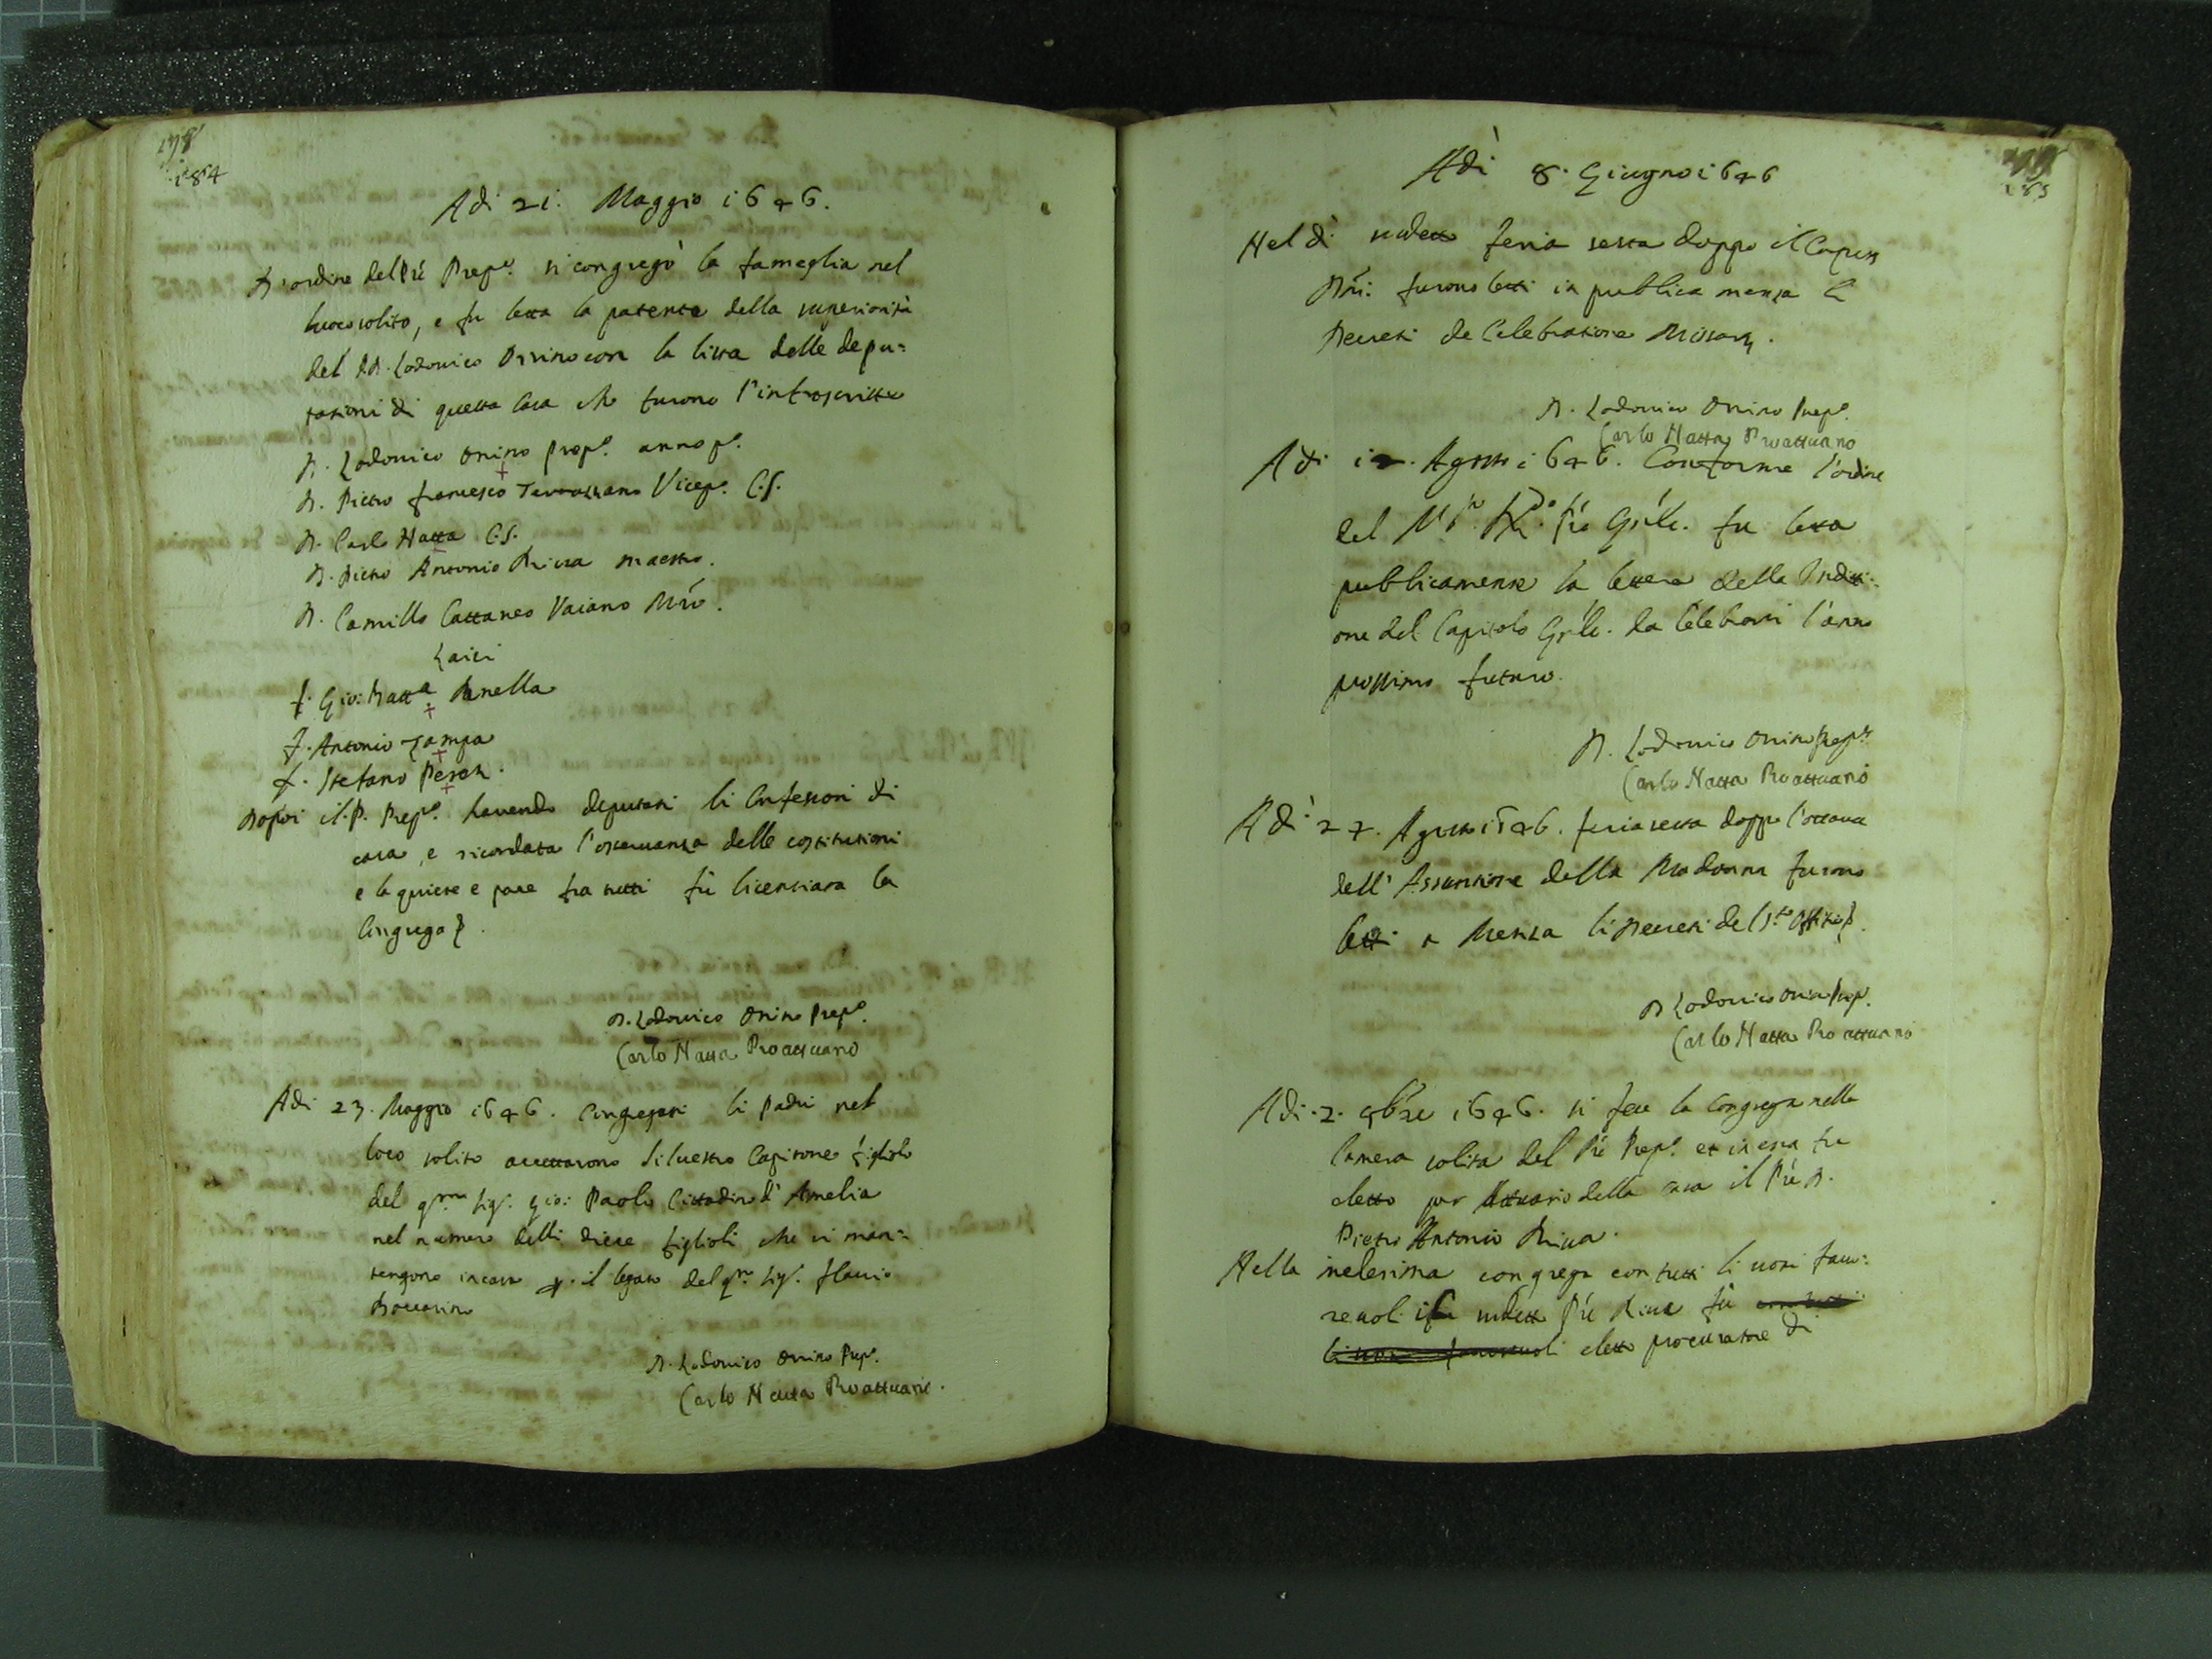 184
Adi 21. Maggio 1646.
D'ordine del Pré Prep.o si congregò la fameglia nel
luoco solito, e fu letta la patente della superiorità
del D. Lodovico Orsino con la lista delle depu=
tationi di questa Casa che furono l'introscritte
D. Lodovico Orsino prep.o anno p.o
D. Pietro francesco Terrazzano Vicep.o C.S.
D. Carlo Natta C.S.
D. Pietro Antonio Riva maestro.
D. Camillo Cattaneo Vaiano Mró.
Laici
f. Gio: Batta
f. Antonio Zampa
f. Stefano
Dopoi il P. Prep.o havendo deputati li Confessori di
casa, e ricordata l'osservanza delle costitutioni
e la quiete e pace fra tutti fù licentiata la
Congrega
D. Lodovico Orsino Prep.o
Carlo Natta Proattuario
Adi 23. Maggio 1646. Congregati li Padri nel
loco solito accettarono Silvestro Capitone figliolo
del qm. sigr. Gio: Paolo Cittadino d'Amelia
nel numero delli diece figlioli che si man=
tengono in casa p. il legato del qm. sigr. flavio
Boccarino
D. Lodovico Orsino Prep.o
Carlo Natta Proattuario.
185
Adì 8. Giugno 1646
Nel dì sudetto feria sesta doppo il Corpus
Dñi: furono letti in publica mensa li
Decreti de Celebratione Missarum.
D. Lodovico Orsino Prep.o
Carlo Natta Proattuario
Adi Agosto 1646. Conforme l'ordine
del Pré Gñle. fu letta
publicamente la lettera della Inditti=
one del Capitolo Gñle. da Celebrarsi l'anno
prossimo futuro.
D. Lodovico Orsino Prep.to
Carlo Natta Proattuario
Adì 27. Agosto 1646. feria sesta doppo l'ottava
dell'Assuntione della Madonna furono
letti a Mensa li Decreti del S.to Offitio
D Lodovico Orsino Prep.o
Carlo Natta Proattuario
Adi. 2. 9bre 1646. si fece la Congrega nella
Camera solita del Pré Prep.o et in essa fu
eletto per Attuario della casa il Pré D.
Pietro Antonio Riva.
Nella medesima congrega con tutti li voti favo=
revoli il sudetto Pré Riva fù con tutti
li voti favorevoli eletto procuratore di